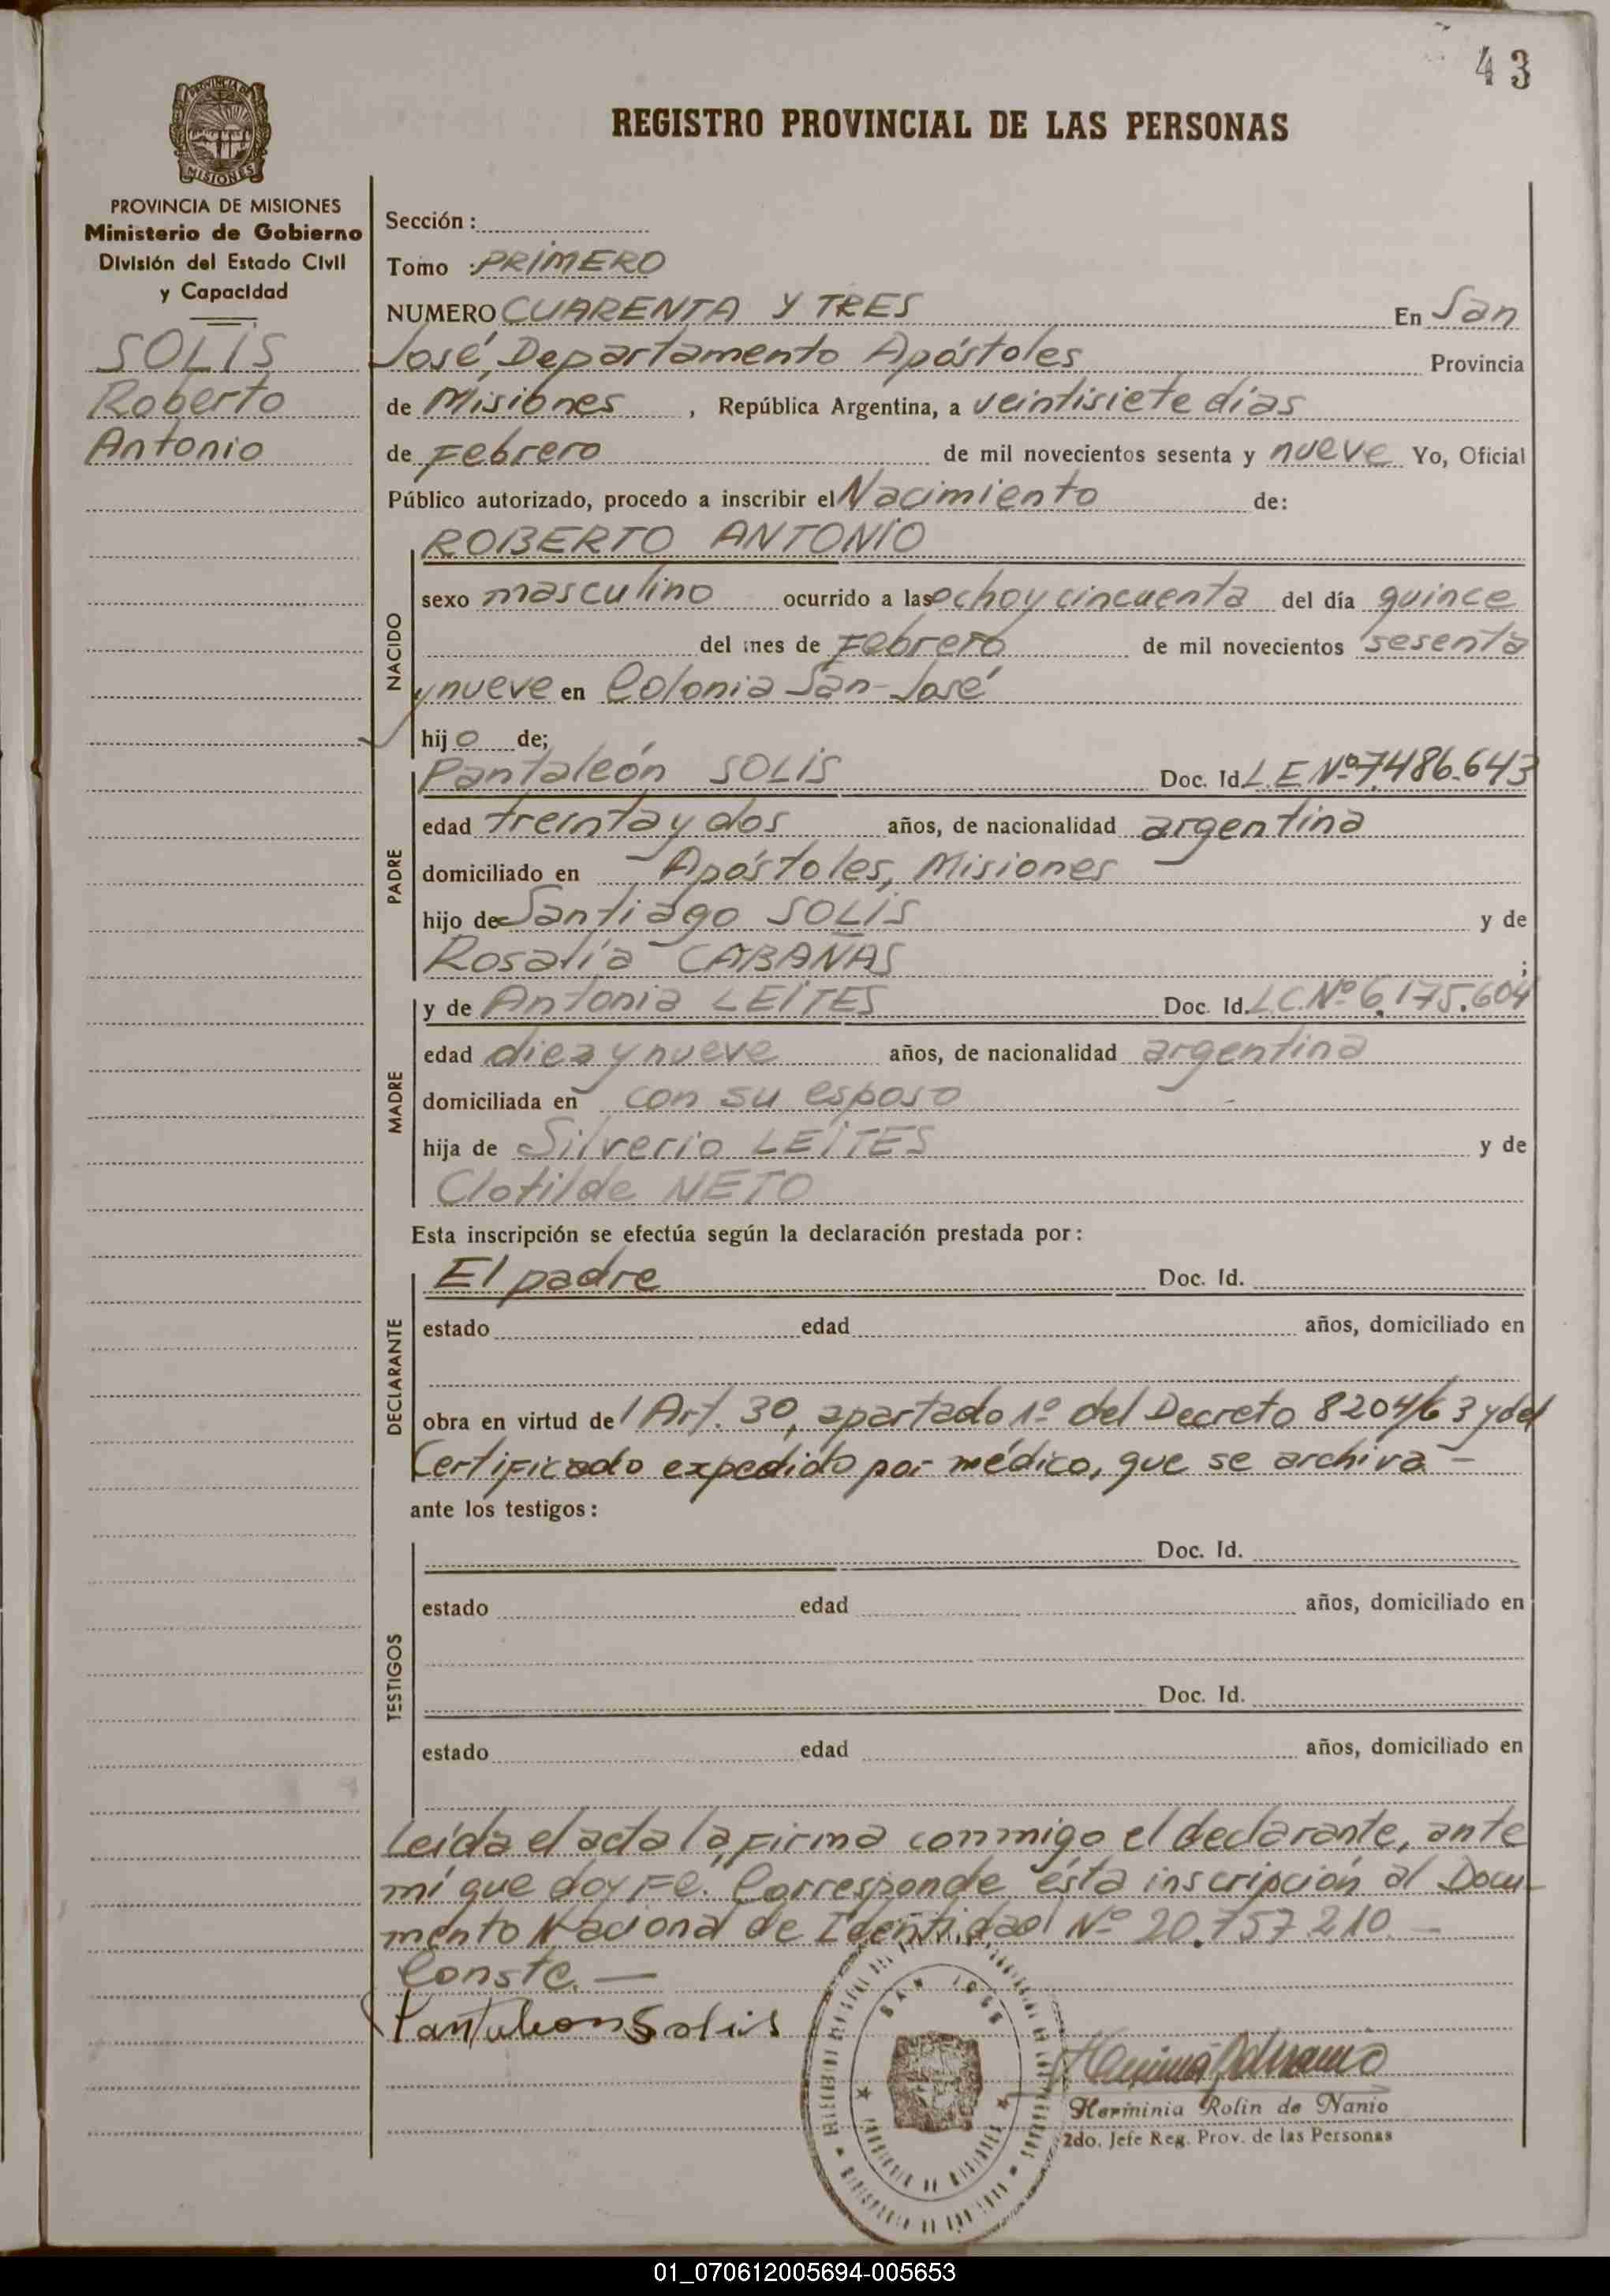 43
REGISTRO PROVINCIAL DE LAS PERSONAS
MISIONES
PROVINCIA DE MISIONES
Ministerio de Gobierno
División del Estado Civil
y Capacidad
SOLIS
Roberto
Antonio
Sección :
Tomo : PRIMERO
NUMERO CUARENTA Y TRES En San
José, Departamento Apóstoles Provincia
de Misiones , República Argentina, a veintisiete días
de Febrero de mil novecientos sesenta y nueve Yo, Oficial
Público autorizado, procedo a inscribir el Nacimiento de:
NACIDO
ROBERTO ANTONIO
sexo masculino ocurrido a las ocho y cincuenta del día quince
del mes de Febrero de mil novecientos sesenta
y nueve en Colonia San José
hijo de;
PADRE
Pantaleón SOLIS Doc. Id. L.E.Nº 7.486.643
edad treinta y dos años, de nacionalidad argentina
domiciliado en Apóstoles, Misiones
hijo de Santiago SOLIS y de
Rosalía CABAÑAS ;
MADRE
y de Antonia LEITES Doc. Id. L.C.Nº 6.175.604
edad diez y nueve años, de nacionalidad argentina
domiciliada en con su esposo
hija de Silverio LEITES y de
Clotilde NETO
Esta inscripción se efectúa según la declaración prestada por :
DECLARANTE
El padre Doc. Id.
estado edad años, domiciliado en
obra en virtud del Art. 30, apartado 1º del Decreto 8204/63 y del
Certificado expedido por médico, que se archiva -
ante los testigos :
TESTIGOS
Doc. Id.
estado edad años, domiciliado en
Doc. Id.
estado edad años, domiciliado en
Leída el acta la firma conmigo el declarante, ante
mí que doy Fé. Corresponde ésta inscripción al Docu-
mento Nacional de Identidad Nº 20.757.210 -
Conste. —
Pantaleon Solis
SAN JOSE
Herminia Rolin de Nanio
2do. Jefe Reg. Prov. de las Personas
01_070612005694-005653